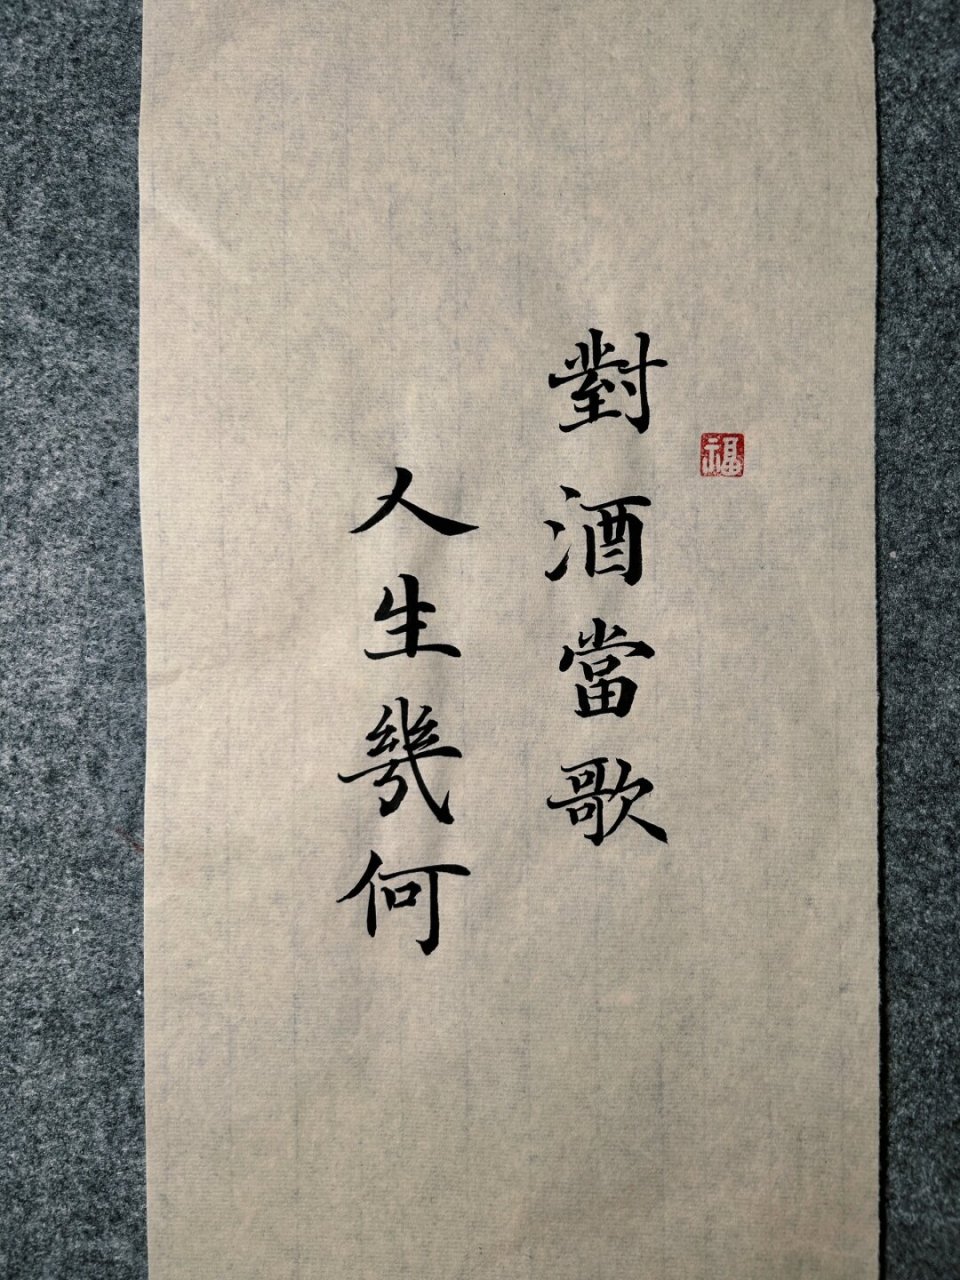 福
對酒當歌
人生幾何